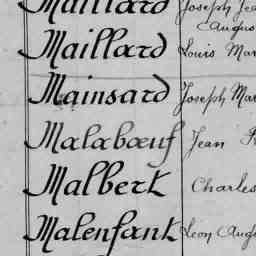 Maillard Joseph Jea
Augus
Maillard Louis Mar
Mainsard Joseph Mar
Malabœuf Jean
Malbert Charles
Malenfant Léon Augu